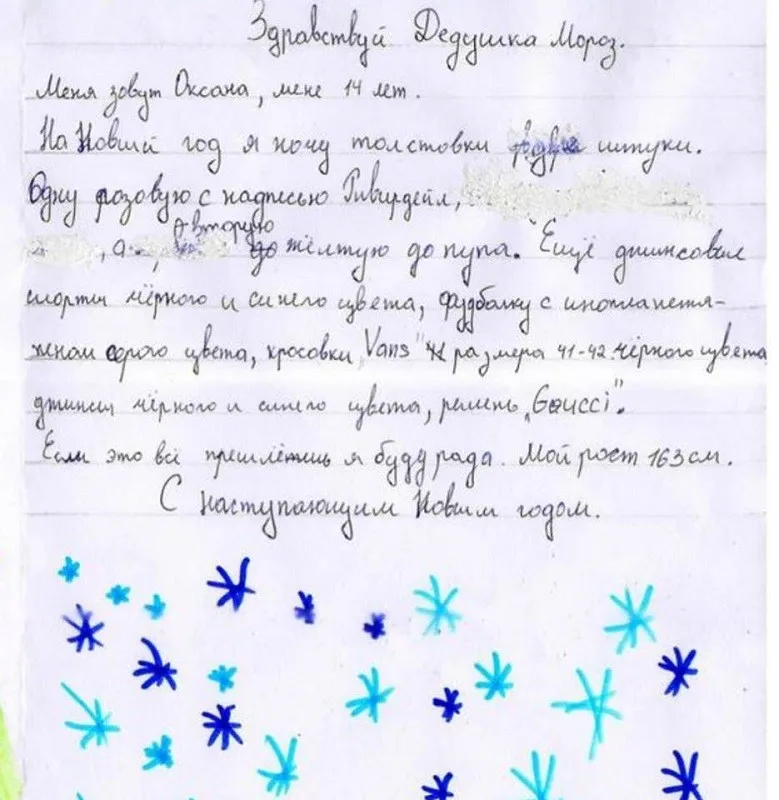 Здравствуй Дедушка Мороз.
Меня зовут Оксана, мене 14 лет.
На Новый год я хочу толстовки две штуки.
Одну розовую с надписью Ривирдейл,
, а вторую жёлтую до пупа. Ещё джинсовые
шорты чёрного и синего цвета, футболку с инопланетя-
неном серого цвета, кросовки „Vans" размера 41-42 чёрного цвета
джинсы чёрного и синего цвета, ремень „Gaucci".
Если это всё прешлёшь я буду рада. Мой рост 163 см.
С наступающим Новым годом.